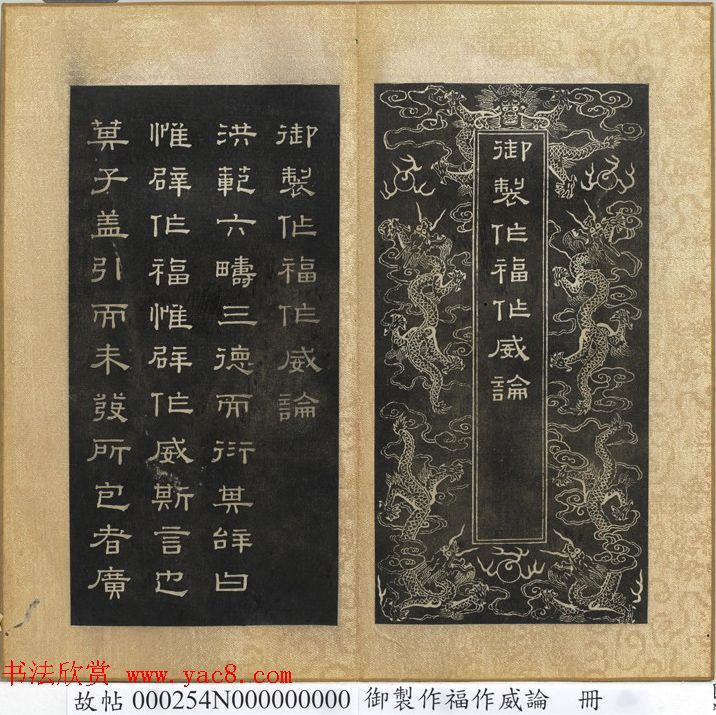 御製作福作威論
御製作福作威論
洪範六疇三德而衍其辞曰
惟辟作福惟辟作威斯言也
箕子盖引而未發所包者廣
书法欣赏 www.yac8.com
故帖 000254N000000000 御製作福作威論 冊